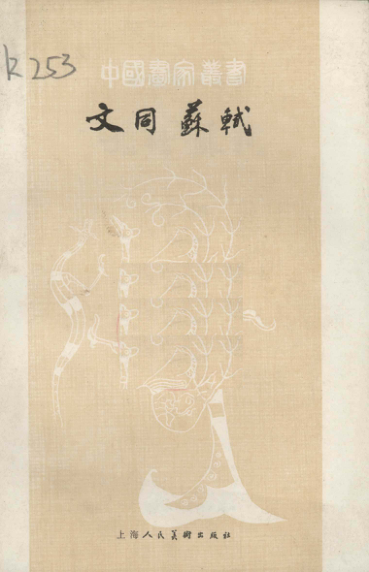 k253
中國畫家叢書
文同 蘇軾
上海人民美術出版社